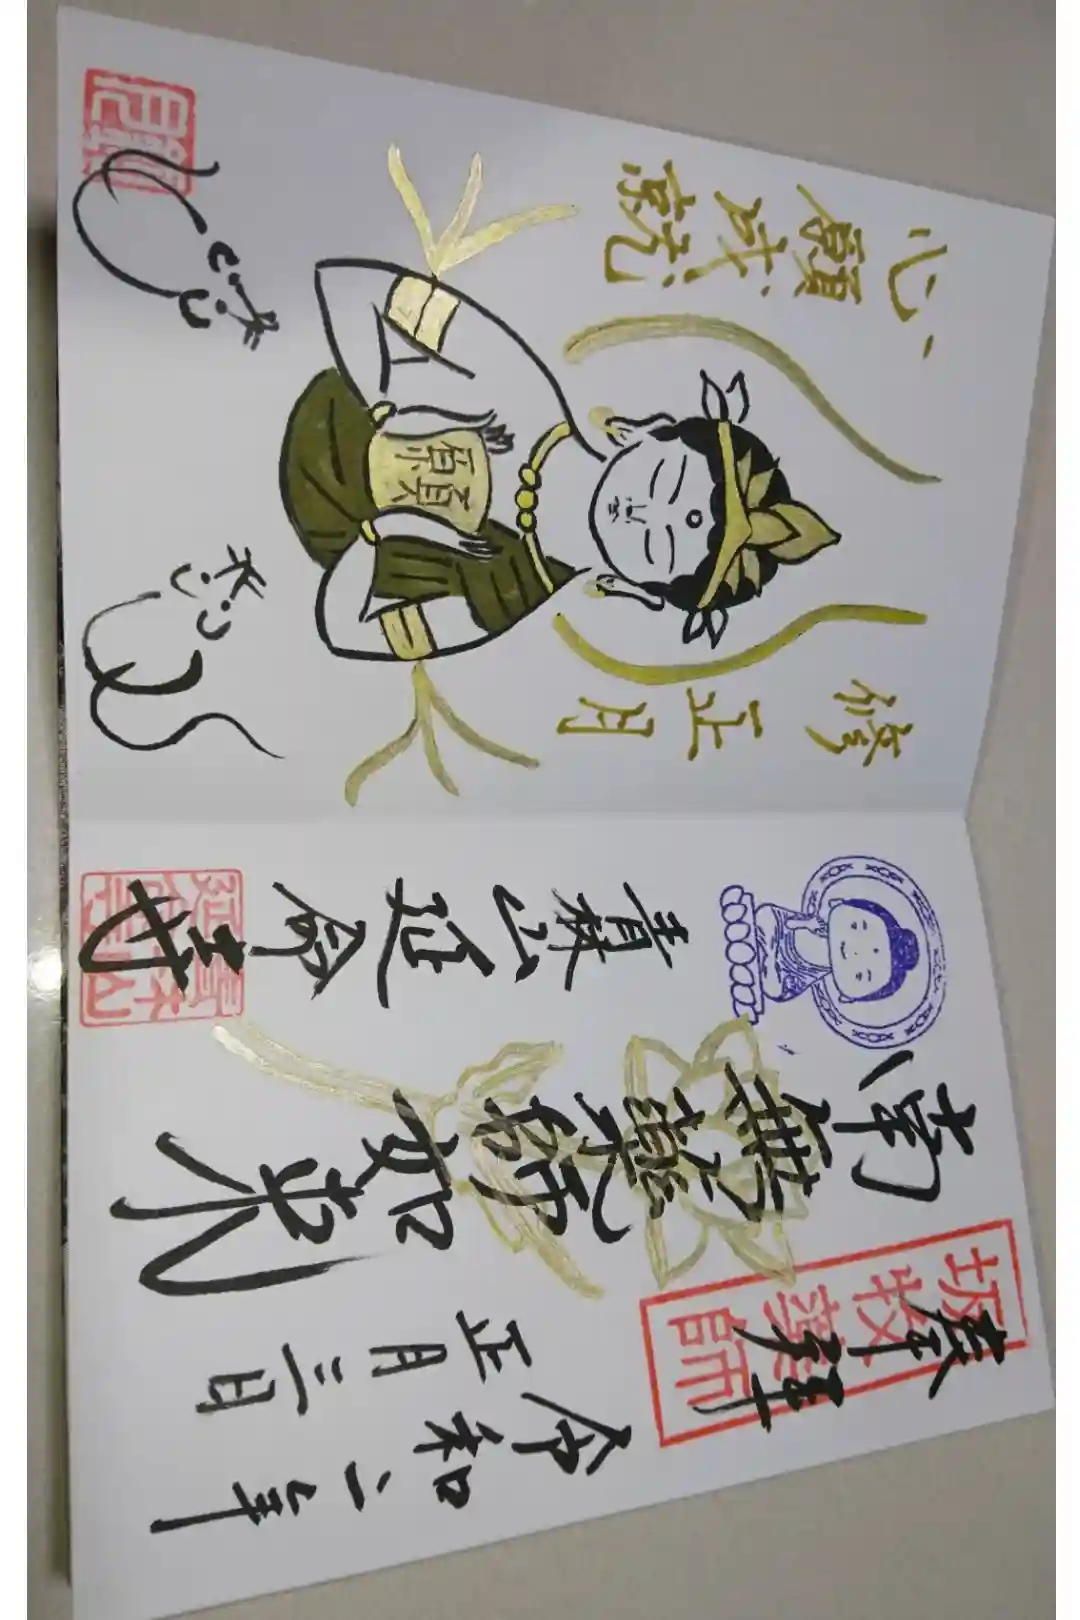 坂牧薬師
奉拝
令和二年
正月三日
南無薬師如来
青林山延命寺
修正月
願
心願成就